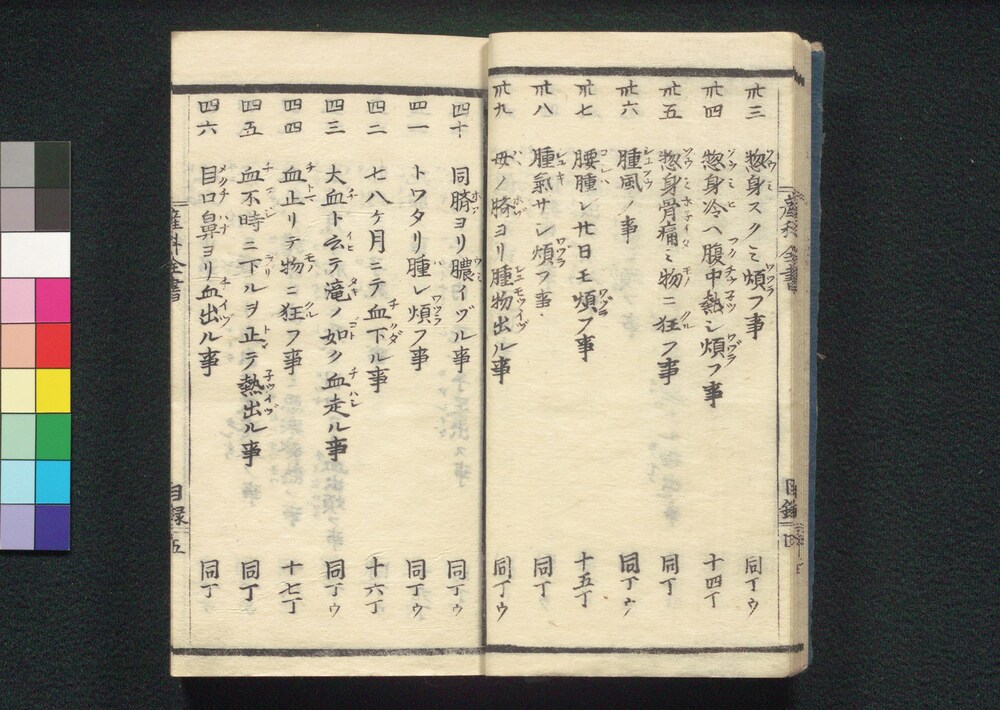 産科全書
目録
卅三 惣身スクミ煩フ事 同丁ウ
卅四 惣身冷ヘ腹中熱シ煩フ事 十四丁
卅五 惣身骨痛ミ物ニ狂フ事 同丁
卅六 腫風ノ事 同丁ウ
卅七 腰腫レ廿日モ煩フ事 十五丁
卅八 腫氣サシ煩フ事 同丁
卅九 母ノ臍ヨリ腫物出ル事 同丁ウ
四十 同臍ヨリ膿イヅル事 同丁ウ
四一 トワタリ腫レ煩フ事 同丁ウ
四二 七八ケ月ニテ血下ル事 十六丁
四三 大血ト云テ滝ノ如ク血走ル事 同丁ウ
四四 血止リテ物ニ狂フ事 十七丁
四五 血不時ニ下ルヲ止テ熱出ル事 同丁
四六 目口鼻ヨリ血出ル事 同丁
産科全書
目録 五